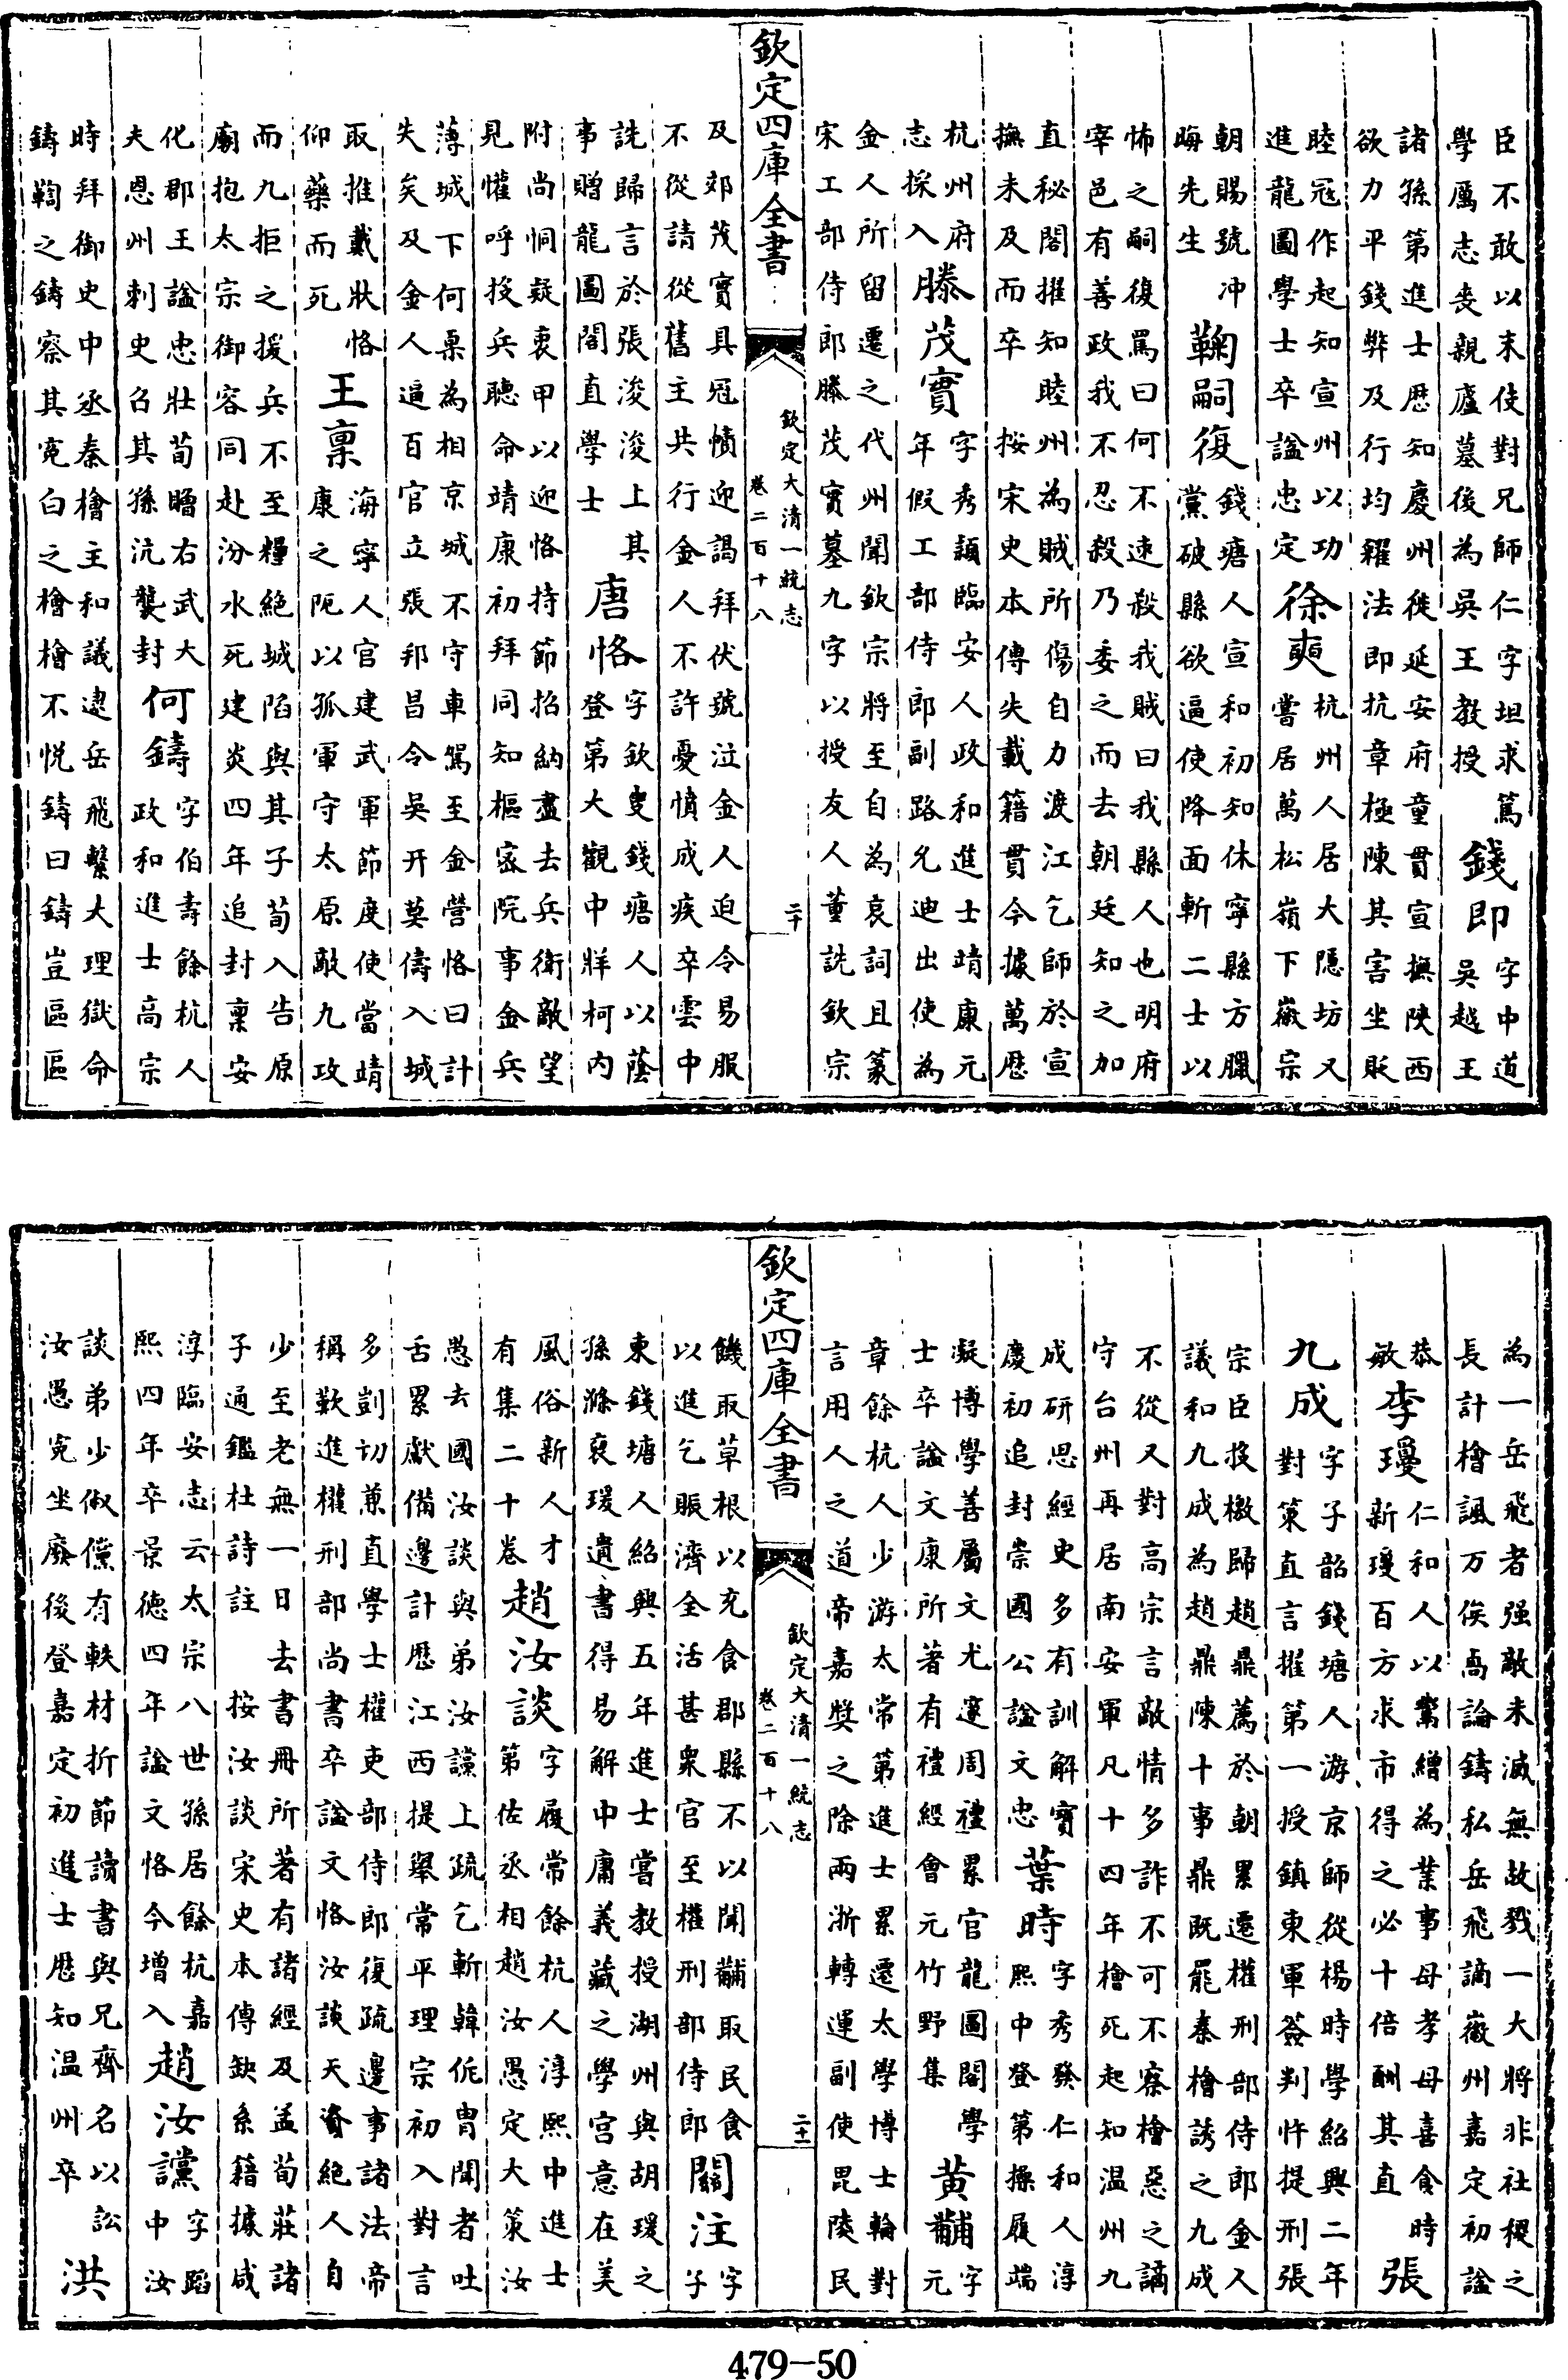 臣不敢以末使對兄師仁字坦求篤
學厲志喪親廬墓後為吳王教授
錢即
字中道
吳越王
諸孫第進士歴知慶州徙延安府童貫宣撫陝西
欲力平錢弊及行均糴法即抗章極陳其害坐貶
睦冦作起知宣州以功
進龍圖學士卒諡忠定
徐奭
杭州人居大隱坊又
嘗居萬松嶺下徽宗
朝賜號冲
晦先生
鞠嗣復
錢塘人宣和初知休寧縣方臘
黨破縣欲逼使降面斬二士以
怖之嗣復罵曰何不速殺我賊曰我縣人也明府
宰邑有善政我不忍殺乃委之而去朝廷知之加
直秘閣擢知睦州為賊所傷自力渡江乞師於宣
撫未及而卒 按宋史本傳失載籍貫今據萬厯
杭州府
志採入
滕茂實
字秀頴臨安人政和進士靖康元
年假工部侍郎副路允迪出使為
金人所留遷之代州聞欽宗將至自為哀詞且篆
宋工部侍郎滕茂實墓九字以授友人董詵欽宗
欽定四庫全書
欽定大清一統志
卷二百十八
二十
及郊茂實具冠幘迎謁拜伏號泣金人迫令易服
不從請從舊主共行金人不許憂憤成疾卒雲中
詵歸言於張浚浚上其
事贈龍圖閣直學士
唐恪
字欽叟錢塘人以蔭
登第大觀中牂柯内
附尚恫疑衷甲以迎恪持節招納盡去兵衛敵望
見懽呼投兵聽命靖康初拜同知樞宻院事金兵
薄城下何㮚為相京城不守車駕至金營恪曰計
失矣及金人逼百官立張邦昌令吳幵莫儔入城
取推戴狀恪
仰藥而死
王稟
海寧人官建武軍節度使當靖
康之阨以孤軍守太原敵九攻
而九拒之援兵不至糧絶城陷與其子荀入告原
廟抱太宗御容同赴汾水死建炎四年追封稟安
化郡王諡忠壯荀贈右武大
夫恩州刺史召其孫沆襲封
何鑄
字伯壽餘杭人
政和進士高宗
時拜御史中丞秦檜主和議逮岳飛繫大理獄命
鑄鞫之鑄察其寃白之檜檜不悦鑄曰鑄豈區區
為一岳飛者强敵未滅無故戮一大將非社稷之
長計檜諷万俟卨論鑄私岳飛謫徽州嘉定初諡
恭
敏
李璦
仁和人以鬻繒為業事母孝母喜食時
新璦百方求市得之必十倍酬其直
張
九成
字子韶錢塘人游京師從楊時學紹興二年
對策直言擢第一授鎮東軍簽判忤提刑張
宗臣投檄歸趙鼎薦於朝累遷權刑部侍郎金人
議和九成為趙鼎陳十事鼎既罷秦檜誘之九成
不從又對高宗言敵情多詐不可不察檜惡之謫
守台州再居南安軍凡十四年檜死起知温州九
成研思經史多有訓解寶
慶初追封崇國公諡文忠
葉時
字秀發仁和人淳
熙中登第操履端
凝博學善屬文尤邃周禮累官龍圖閣學
士卒諡文康所著有禮經會元竹野集
黄黼
字
元
章餘杭人少游太常第進士累遷太學博士輪對
言用人之道帝嘉奬之除兩浙轉運副使毘陵民
欽定四庫全書
欽定大清一統志
卷二百十八
二十一
饑取草根以充食郡縣不以聞黼取民食
以進乞賑濟全活甚衆官至權刑部侍郎
關注
字
子
東錢塘人紹興五年進士嘗教授湖州與胡瑗之
孫滌裒瑗遺書得易解中庸義藏之學宫意在美
風俗新人才
有集二十卷
趙汝談
字履常餘杭人淳熙中進士
第佐丞相趙汝愚定大策汝
愚去國汝談與弟汝讜上疏乞斬韓侂胄聞者吐
舌累獻備邊計歴江西提舉常平理宗初入對言
多剴切兼直學士權吏部侍郎復疏邊事諸法帝
稱歎進權刑部尚書卒諡文恪汝談天資絶人自
少至老無一日去書冊所著有諸經及孟荀莊諸
子通鑑杜詩註 按汝談宋史本傳缺系籍據咸
淳臨安志云太宗八世孫居餘杭嘉
熙四年卒景德四年諡文恪今增入
趙汝讜
字蹈
中汝
談弟少俶儻有軼材折節讀書與兄齊名以訟
汝愚寃坐廢後登嘉定初進士歴知温州卒
洪
479—50